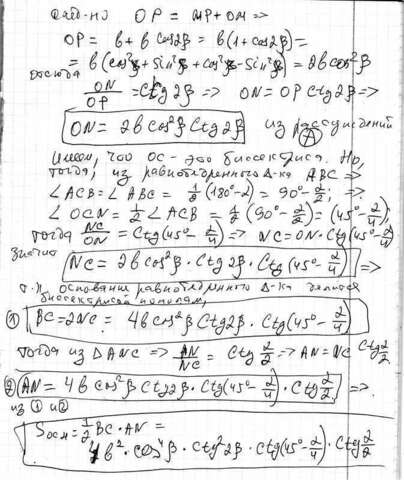 След-но OP = MP+OM =>
OP = b + b cos2β = b(1+cos2β) =
= b(cos²β + sin²β + cos²β - sin²β) = 2b cos²β
отсюда
ON/OP = ctg2β => ON = OP ctg2β =>
ON = 2b cos²β ctg2β из рассуждений
Имеем, что OC - это биссектриса. Но,
тогда, из равнобедренного Δ-ка ABC =>
∠ACB = ∠ABC = 1/2 (180°-α) = 90° - α/2; =>
∠OCN = 1/2 ∠ACB = 1/2 (90° - α/2) = (45° - α/4),
тогда NC/ON = ctg(45° - α/4) => NC = ON·ctg(45° - α/4)
значит
NC = 2b cos²β · ctg2β · ctg(45° - α/4) =>
т.к. основание равнобедренного Δ-ка делится
биссектрисой пополам,
① BC = 2NC = 4b cos²β ctg2β · ctg(45° - α/4)
тогда из ΔANC => AN/NC = ctg α/2 => AN = NC ctg α/2
② AN = 4b cos²β ctg2β · ctg(45° - α/4) · ctg α/2 =>
из ① и ②
Sосн = 1/2 BC · AN =
4b² · cos⁴β · ctg²2β · ctg(45° - α/4) · ctg α/2